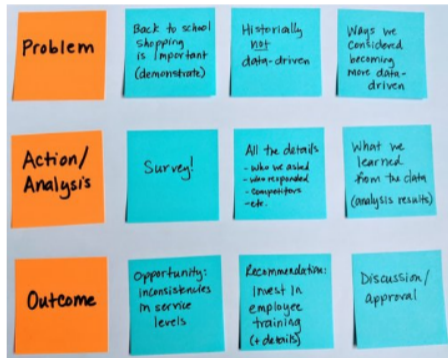 Problem
Back to school
shopping
is important
(demonstrate)
Historically
not
data-driven
Ways we
considered
becoming
more data-
driven
Action/
Analysis
Survey!
All the details
- who we asked
- who responded
- competitors
- etc.
What we
learned
from the data
(analysis results)
Outcome
Opportunity:
inconsistencies
in service
levels
Recommendation:
Invest in
employee
training
(+ details)
Discussion/
approval